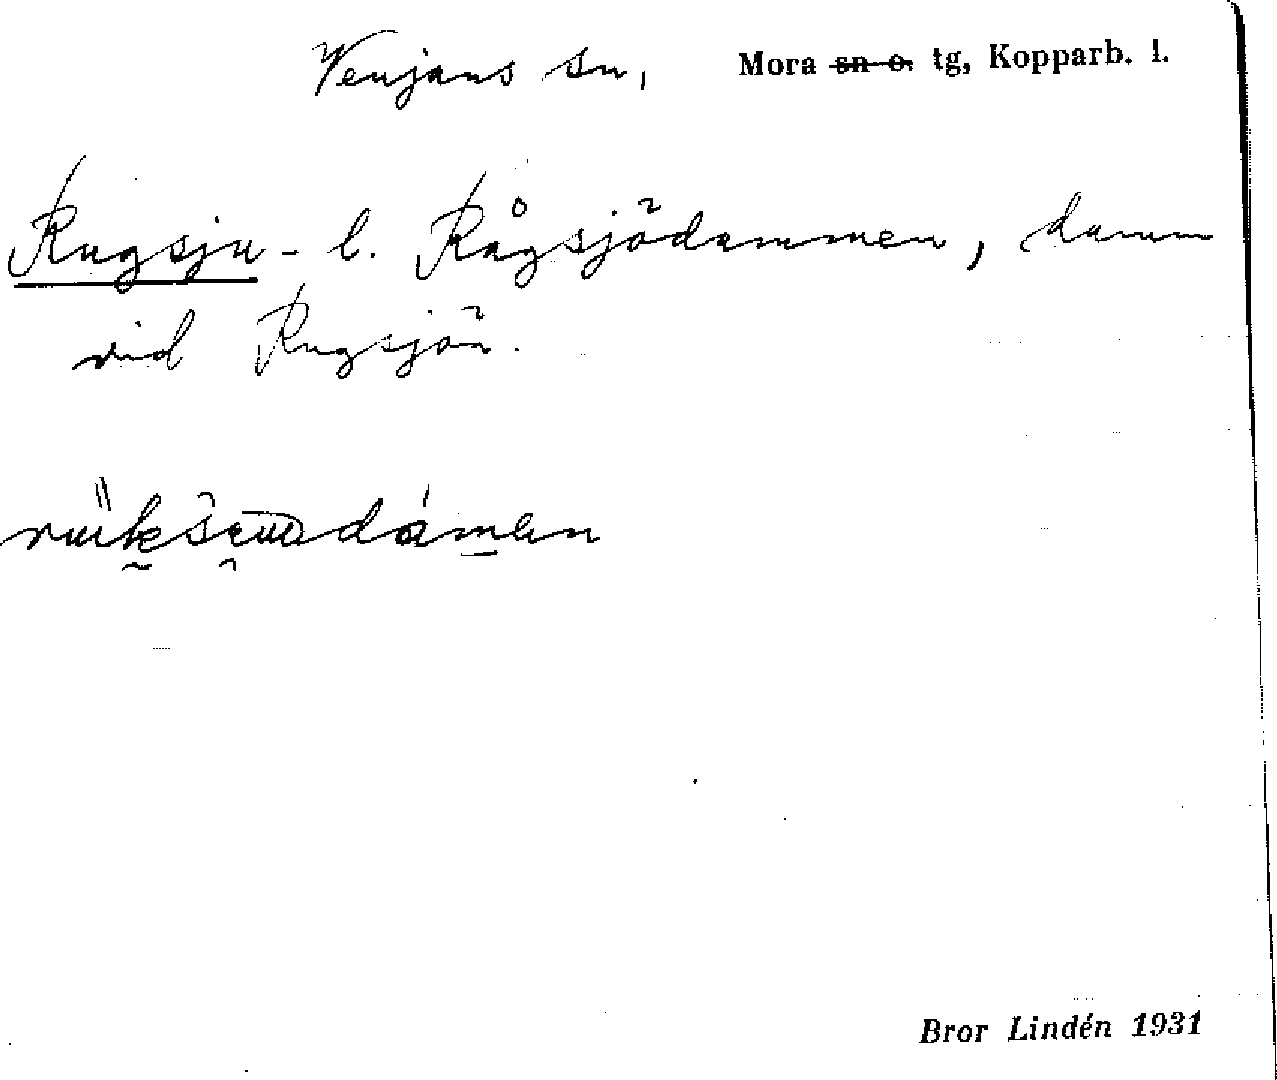 Venjans sn, Mora sn o. tg, Kopparb. l.
Rugsju- l. Rågsjödammen, damm
vid Rugsjön.
Bror Lindén 1931